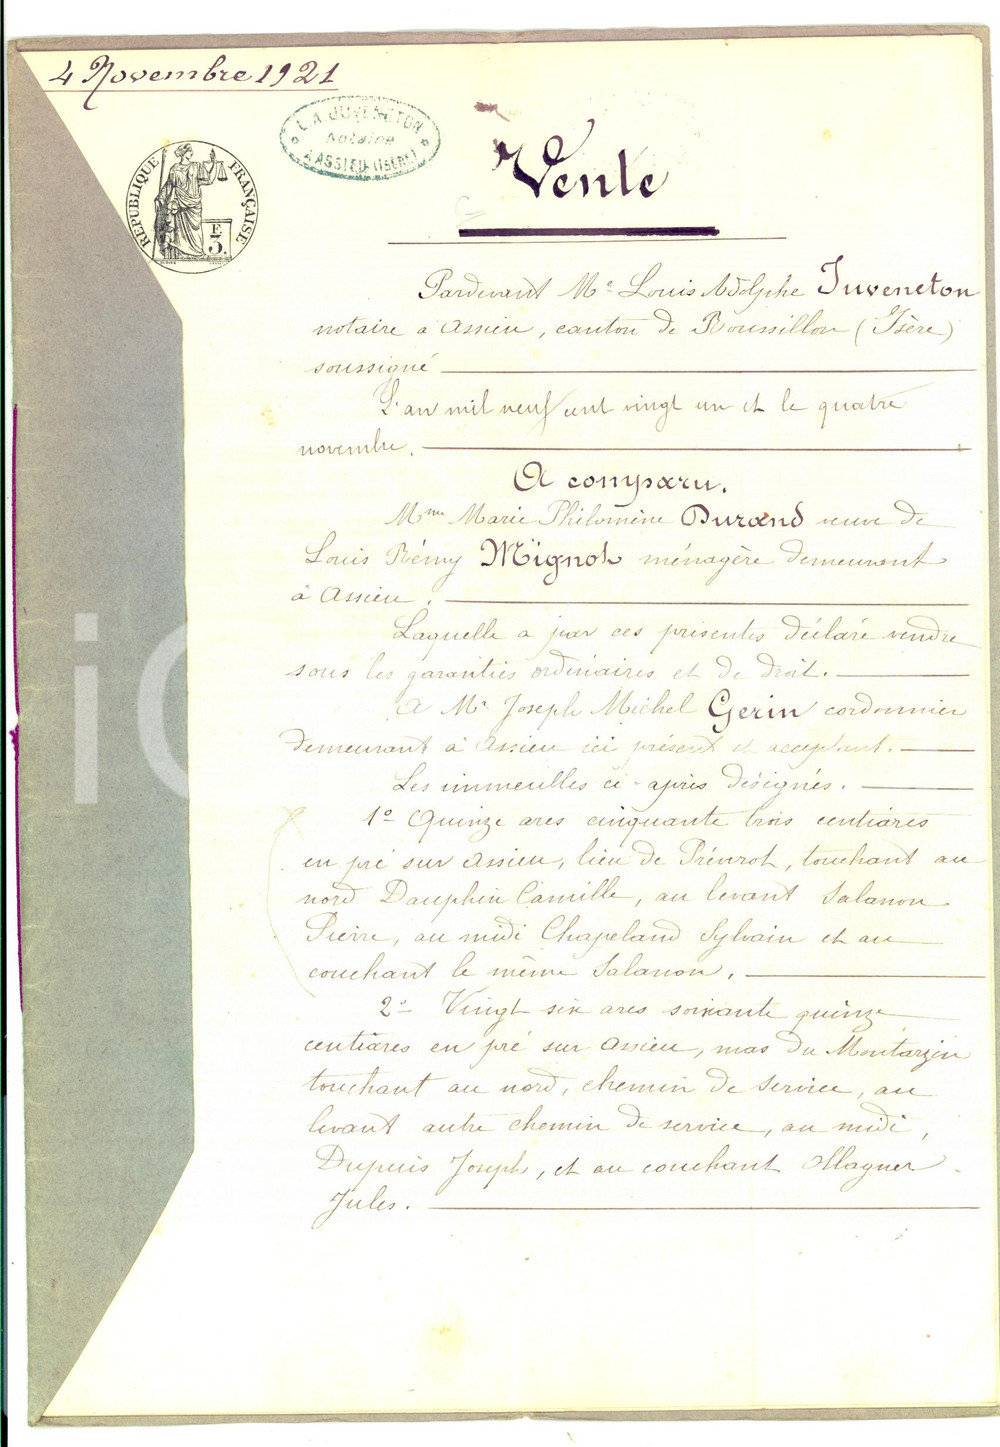 4 Novembre 1921
L. A. JUVENETON
Notaire
A ASSIEU (ISÈRE)
RÉPUBLIQUE FRANÇAISE
F
3.
Vente
Pardevant Me Louis Adolphe Juveneton
notaire à Assieu, canton de Roussillon (Isère)
soussigné
L'an mil neuf cent vingt un et le quatre
novembre.
A comparu.
Mme Marie Philomène Durand veuve de
Louis Rémy Mignot ménagère demeurant
à Assieu.
Laquelle a par ces présentes déclaré vendre
sous les garanties ordinaires et de droit.
A Mr Joseph Michel Gerin cordonnier
demeurant à Assieu ici présent et acceptant.
Les immeubles ci-après désignés.
1o Quinze ares cinquante trois centiares
en pré sur Assieu, lieu de, touchant au
nord Dauphin Camille, au levant Salanon
Pierre, au midi Chapeland Sylvain et au
couchant le même Salanon.
2o Vingt six ares soixante quinze
centiares en pré sur Assieu, mas du Montarzin
touchant au nord, chemin de service, au
levant autre chemin de service, au midi,
Dupuis Joseph, et au couchant
Jules.